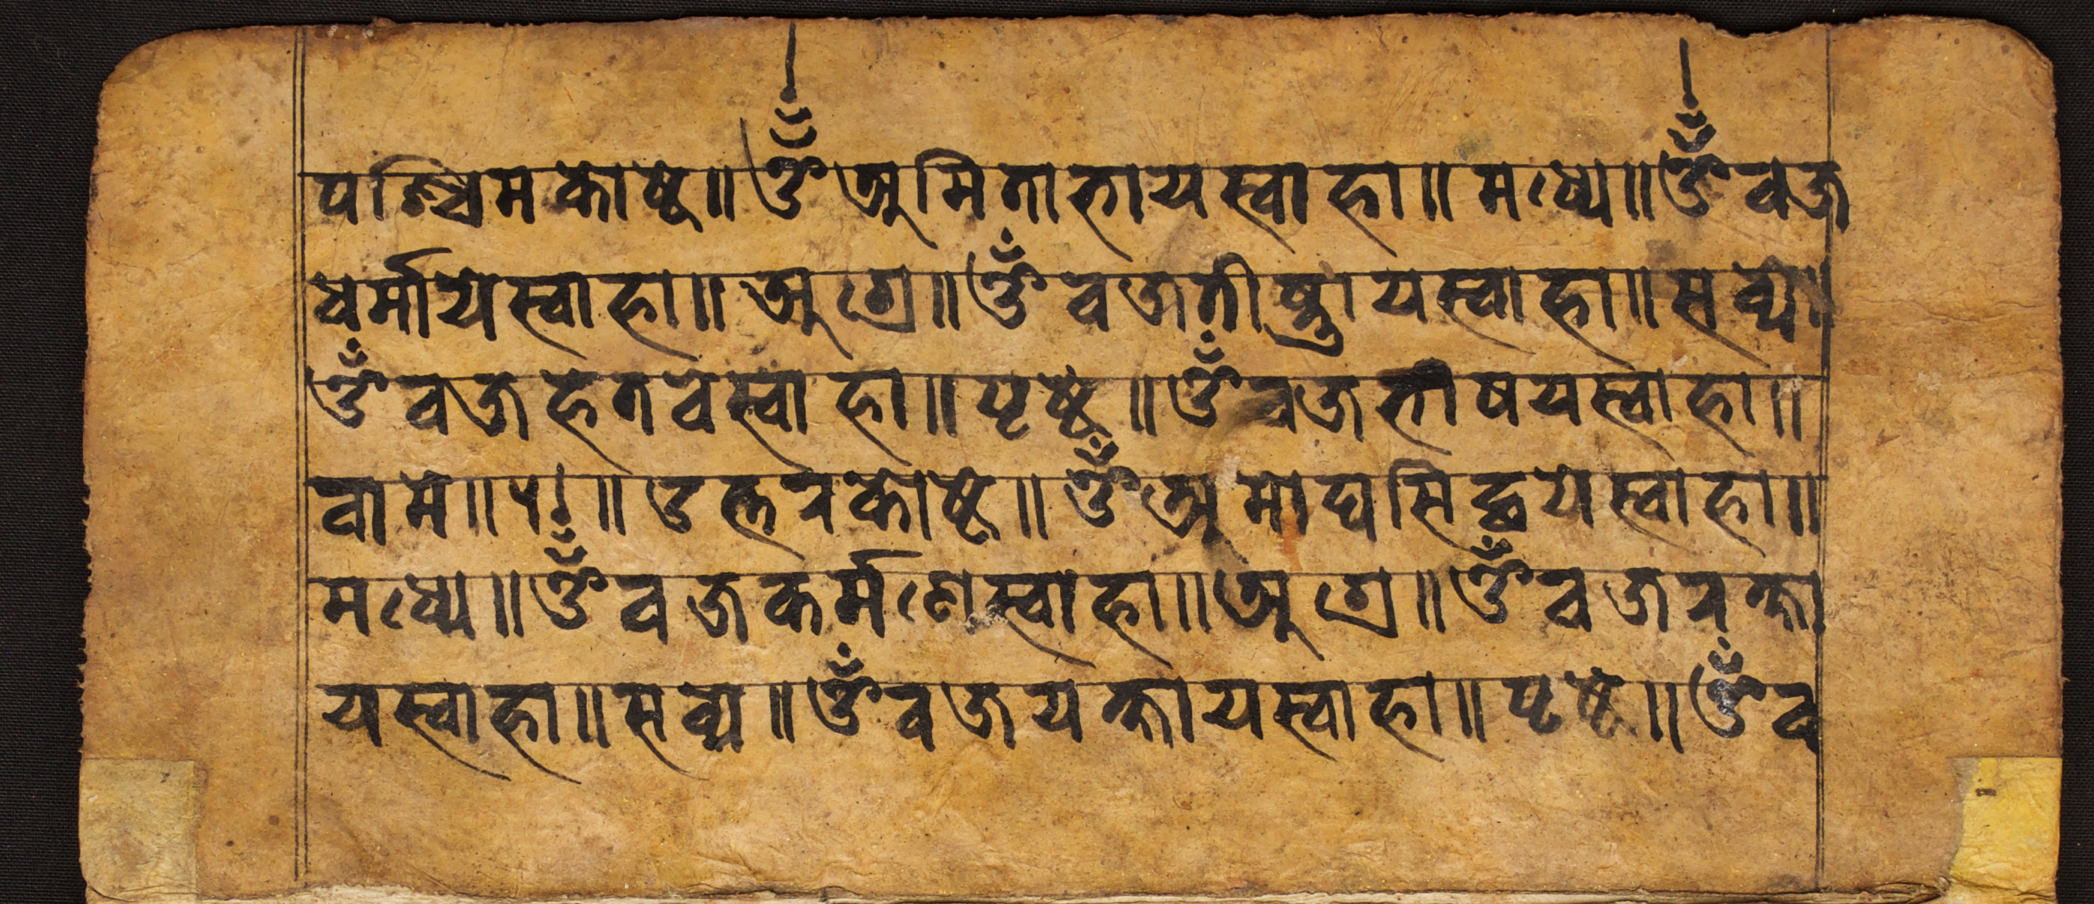 पश्चिमकोष्ठ॥ ॐ अमिताभाय स्वाहा॥ मध्ये॥ ॐ वज्र
धर्माये स्वाहा॥ अग्रे॥ ॐ वज्रतीक्ष्णाय स्वाहा॥ सव्ये॥
ॐ वज्रहेतवे स्वाहा॥ पृष्ठे॥ ॐ वज्रभाषय स्वाहा॥
वामे॥ ५॥ उत्तरकोष्ठे॥ ॐ अमोघसिद्धये स्वाहा॥
मध्ये॥ ॐ वज्रकर्मणे स्वाहा॥ अग्रे॥ ॐ वज्ररक्षा
य स्वाहा॥ सव्य॥ ॐ वज्रयक्षाय स्वाहा॥ पृष्ठे॥ ॐ व